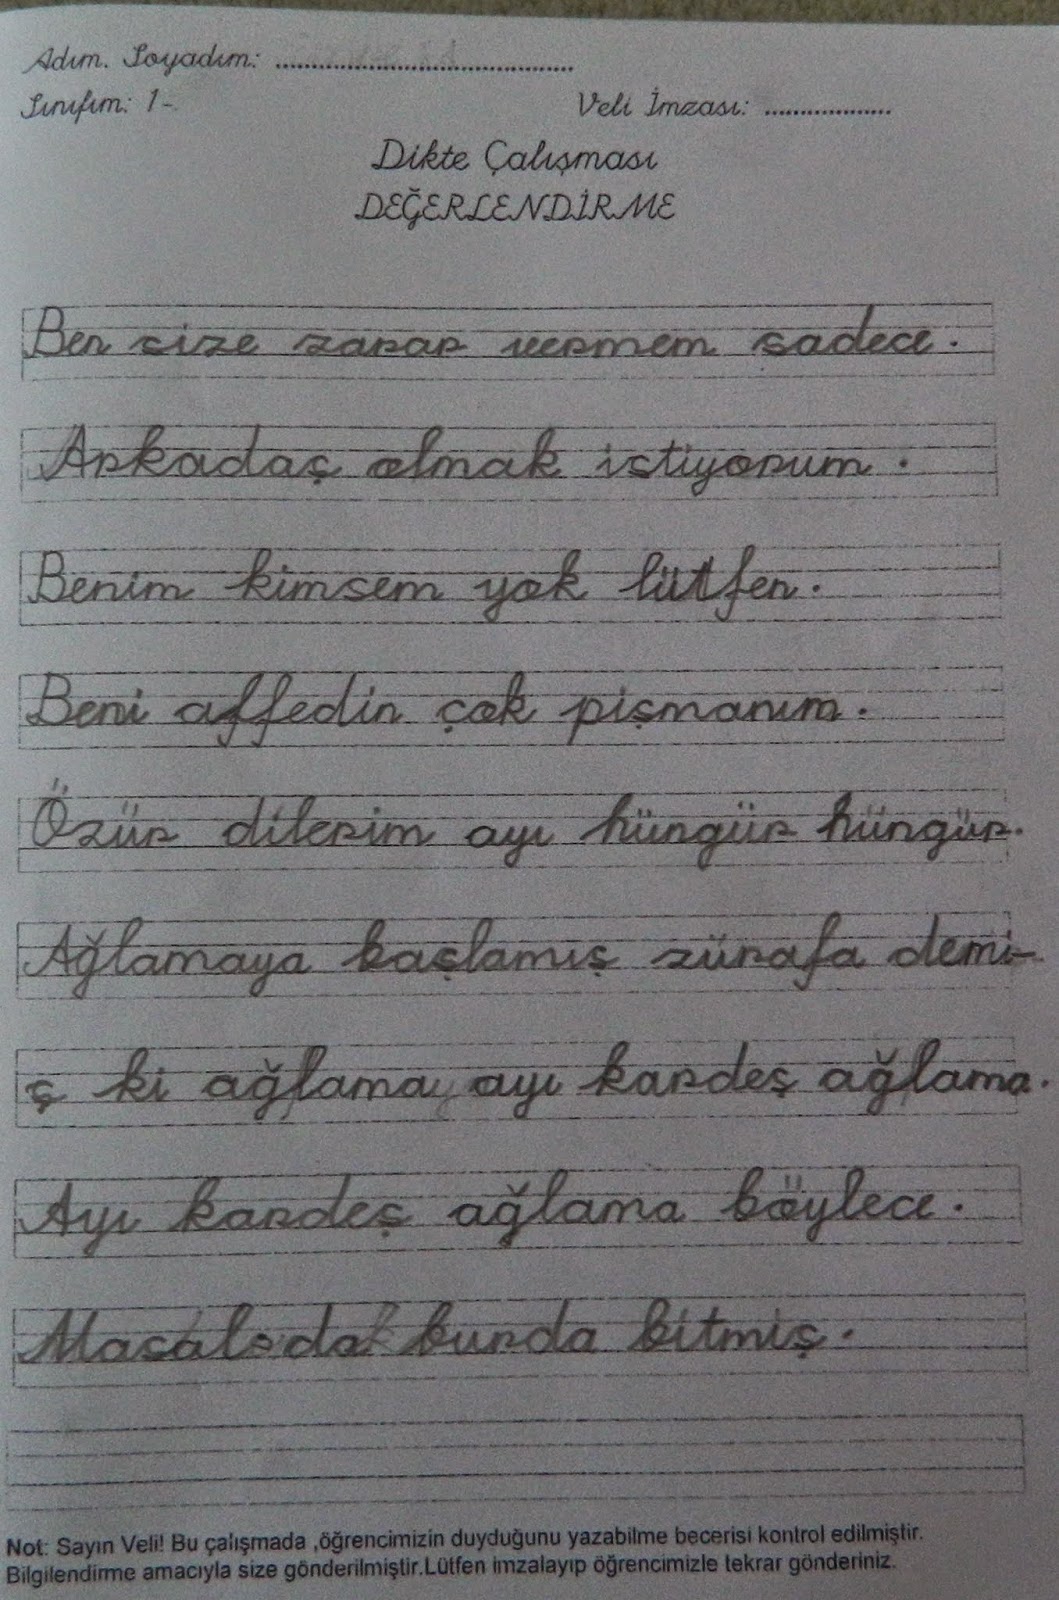 Adım. Soyadım: ..........................................
Sınıfım: 1-
Veli İmzası: ..................
Dikte Çalışması
DEĞERLENDİRME
Ben size zarar vermem sadece.
Arkadaş olmak istiyorum.
Benim kimsem yok lütfen.
Beni affedin çok pişmanım.
Özür dilerim ayı hüngür hüngür.
Ağlamaya başlamış zürafa demi-
ş ki ağlama ayı kardeş ağlama.
Ayı kardeş ağlama böylece.
Masal da burda bitmiş.
Not: Sayın Veli! Bu çalışmada ,öğrencimizin duyduğunu yazabilme becerisi kontrol edilmiştir.
Bilgilendirme amacıyla size gönderilmiştir.Lütfen imzalayıp öğrencimizle tekrar gönderiniz.